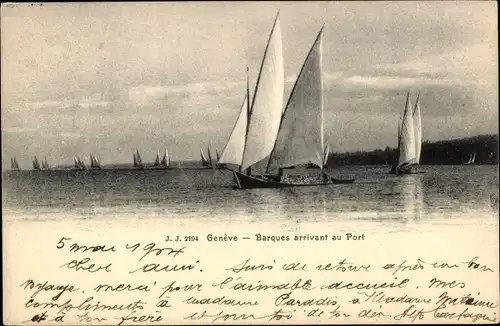 J. J. 2294 Genève — Barques arrivant au Port
5 mai 1904
cher ami. Suis de retour après un bon
voyage. merci pour l'aimable accueil. Mes
compliments à Madame Paradis, à Madame
et à ton frère et pour toi de ton